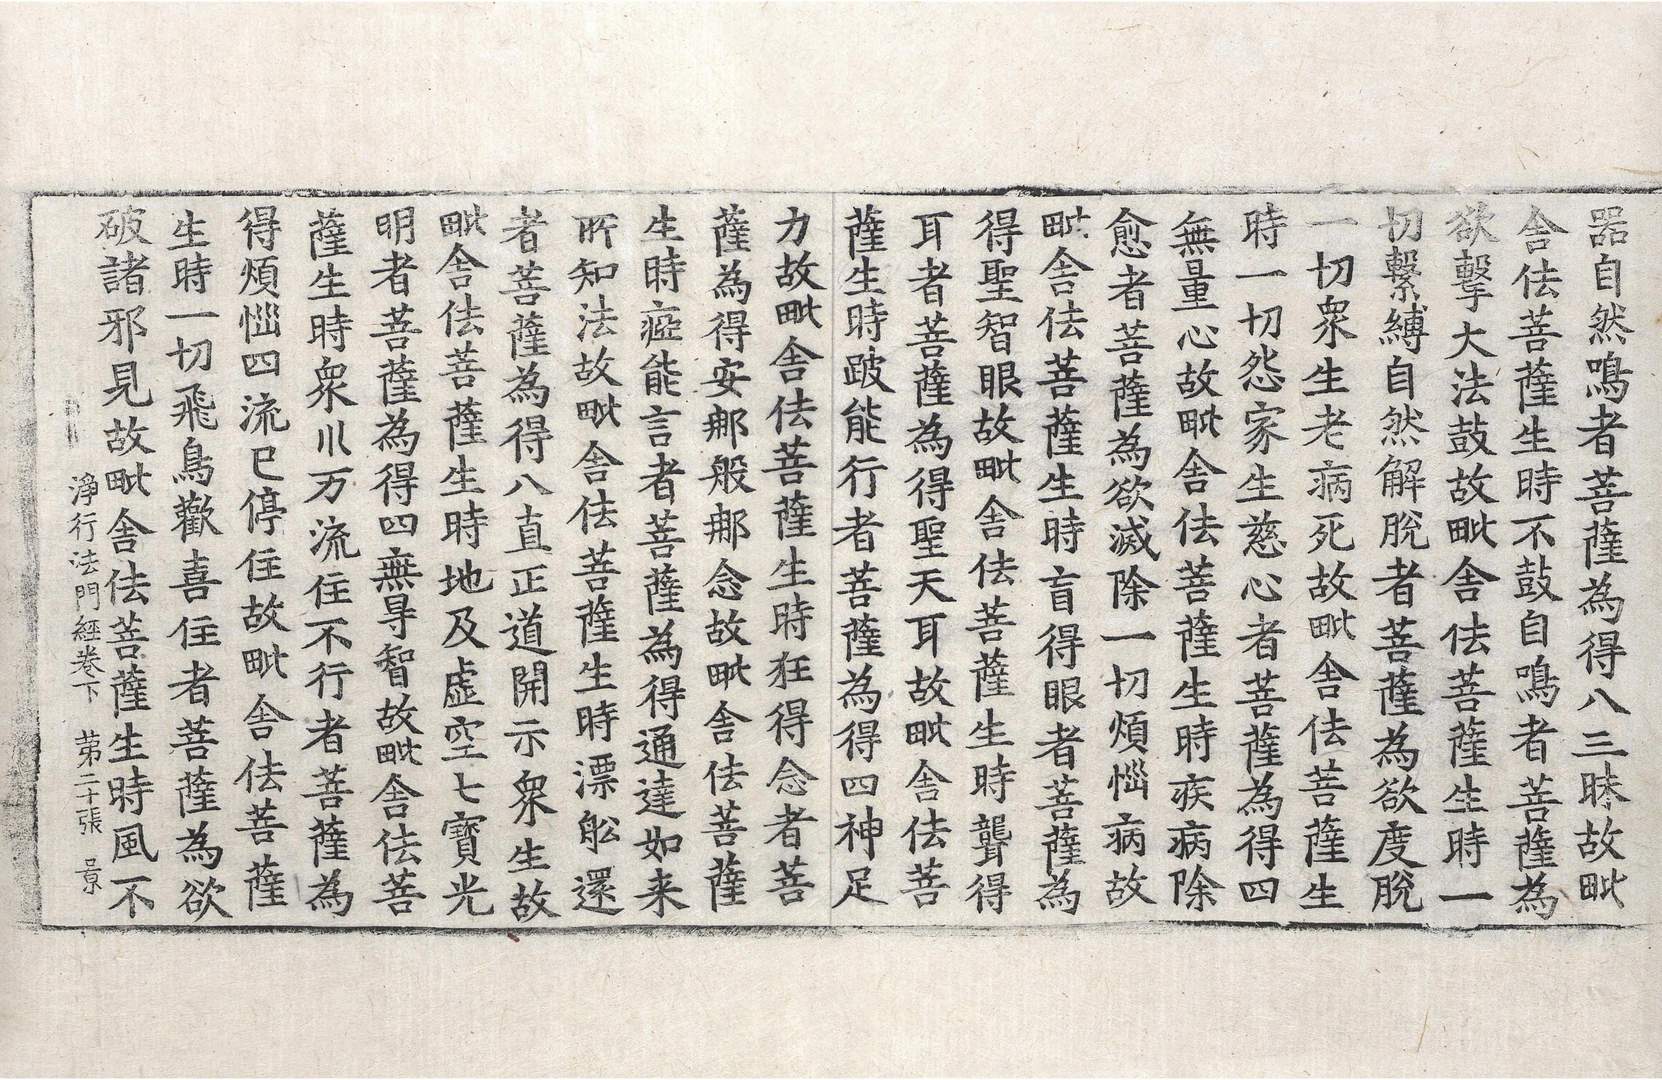 器自然鳴者菩薩為得八三昧故毗
舍佉菩薩生時不鼓自鳴者菩薩為
欲擊大法鼓故毗舍佉菩薩生時一
切繫縛自然解脫者菩薩為欲度脫
一切眾生老病死故毗舍佉菩薩生
時一切怨家生慈心者菩薩為得四
無量心故毗舍佉菩薩生時疾病除
愈者菩薩為欲滅除一切煩惱病故
毗舍佉菩薩生時盲得眼者菩薩為
得聖智眼故毗舍佉菩薩生時聾得
耳者菩薩為得聖天耳故毗舍佉菩
薩生時跛能行者菩薩為得四神足
力故毗舍佉菩薩生時狂得念者菩
薩為得安那般那念故毗舍佉菩薩
生時瘂能言者菩薩為得通達如来
所知法故毗舍佉菩薩生時漂舩還
者菩薩為得八直正道開示眾生故
毗舍佉菩薩生時地及虛空七寶光
明者菩薩為得四無㝵智故毗舍佉菩
薩生時眾川万流住不行者菩薩為
得煩惱四流已停住故毗舍佉菩薩
生時一切飛鳥歡喜住者菩薩為欲
破諸邪見故毗舍佉菩薩生時風不
淨行法門經卷下 第二十張 景